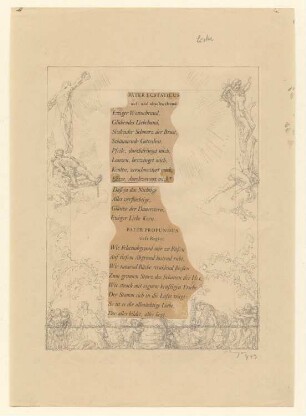 PATER ECSTATICUS
auf- und abschwebend
Ewiger Wonnebrand,
Glühendes Liebeband,
Siedender Schmerz der Brust,
Schäumende Gotteslust.
Pfeile, durchdringet mich,
Lanzen, bezwinget mich,
Keulen, zerschmettert mich,
Blitze, durchwettert mich!
Daß ja das Nichtige
Alles verflüchtige,
Glänze der Dauerstern,
Ewiger Liebe Kern.
PATER PROFUNDUS
tiefe Region
Wie Felsenabgrund mir zu Füßen
Auf tiefem Abgrund lastend ruht,
Wie tausend Bäche strahlend fließen
Zum grausen Sturz des Schaums der Flut,
Wie strack mit eignem kräftigen Triebe
Der Stamm sich in die Lüfte trägt:
So ist es die allmächtige Liebe,
Die alles bildet, alles hegt.